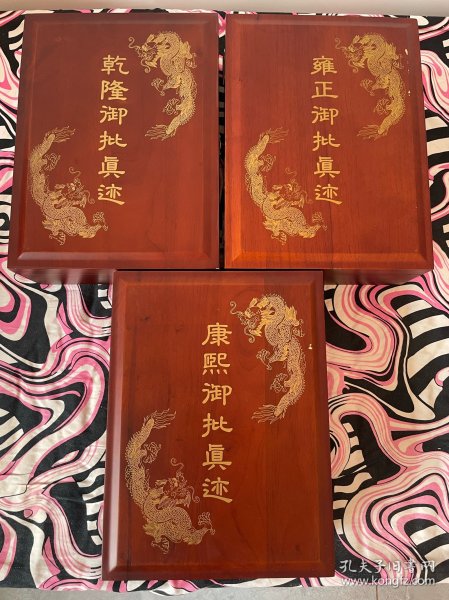 乾隆御批真迹
雍正御批真迹
康熙御批真迹
孔夫子旧书网
www.kongfz.com